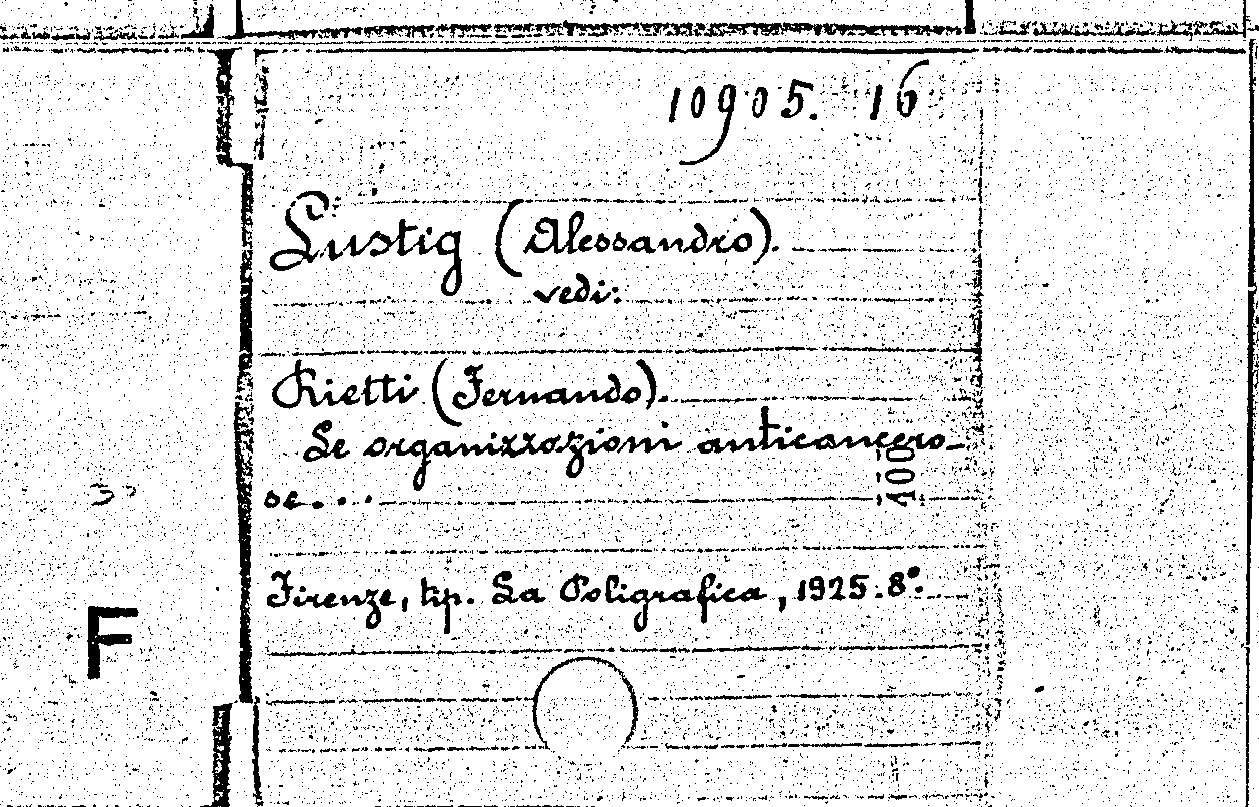 10905. 16
Lustig (Alessandro).
vedi:
Rietti (Fernando).
Le organizzazioni anticancero-
se....
100
Firenze, tip. La Poligrafica, 1925. 8°.
F